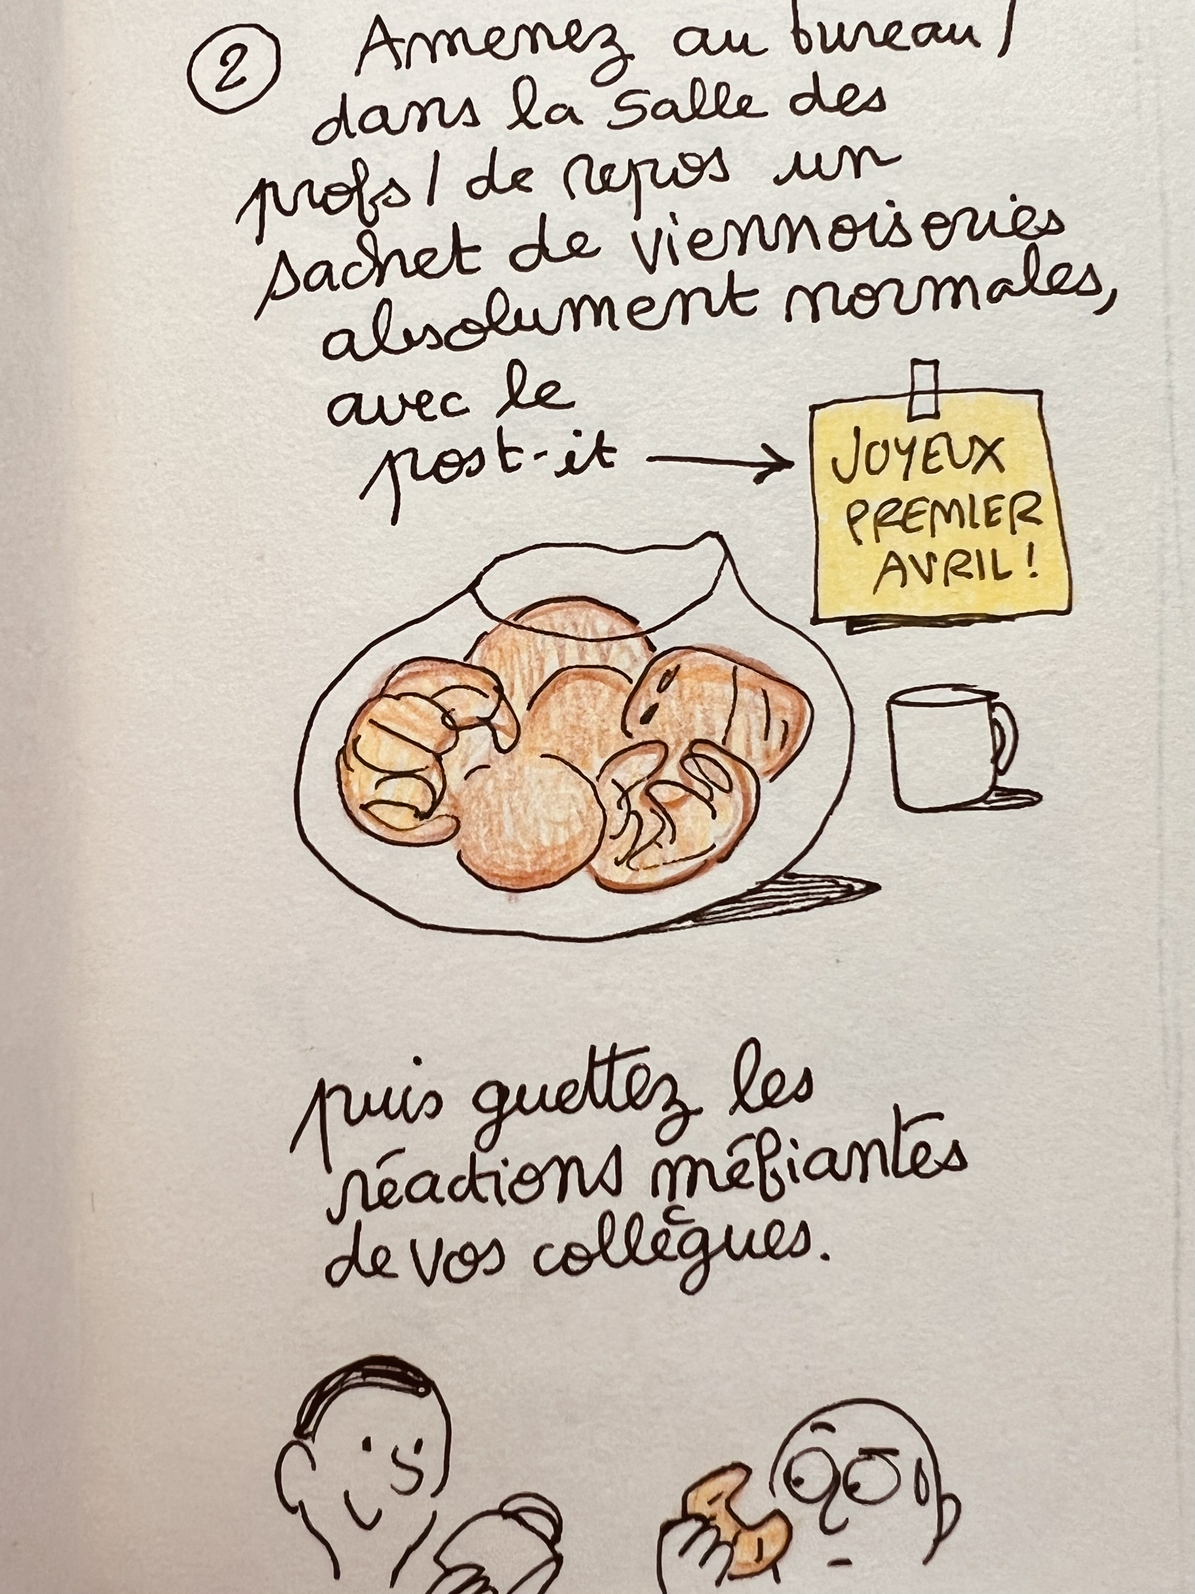 2 Amenez au bureau /
dans la salle des
profs / de repos un
sachet de viennoiseries
absolument normales,
avec le
post-it →
JOYEUX
PREMIER
AVRIL !
puis guettez les
réactions méfiantes
de vos collègues.